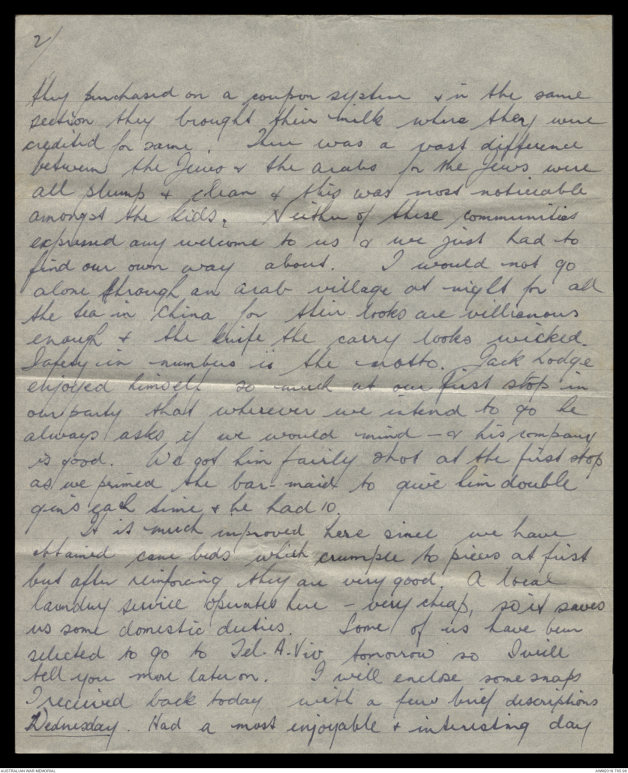 2/
they purchased on a coupon system & in the same
section they brought their milk where they were
credited for same. There was a vast difference
between the Jews & the arabs for the Jews were
all plump & clean & this was most noticeable
amongst the kids. Neither of these communities
expressed any welcome to us & we just had to
find our own way about. I would not go
alone through an arab village at night for all
the tea in China for their looks are villianous
enough & the knife the carry looks wicked.
Safety in numbers is the motto. Jack Lodge
enjoyed himself so much at our first stop in
our party that wherever we intend to go he
always asks if we would mind - & his company
is good. We got him fairly shot at the first stop
as we primed the bar-maid to give him double
gins each time & he had 10.
It is much improved here since we have
obtained cane beds which crumple to pieces at first
but after reinforcing they are very good. A local
laundry service operates here - very cheap, so it saves
us some domestic duties. Some of us have been
selected to go to Tel-A-Viv tomorrow so I will
tell you more later on. I will enclose some snaps
I received back today with a few brief discriptions
Wednesday. Had a most enjoyable & interesting day
AUSTRALIAN WAR MEMORIAL